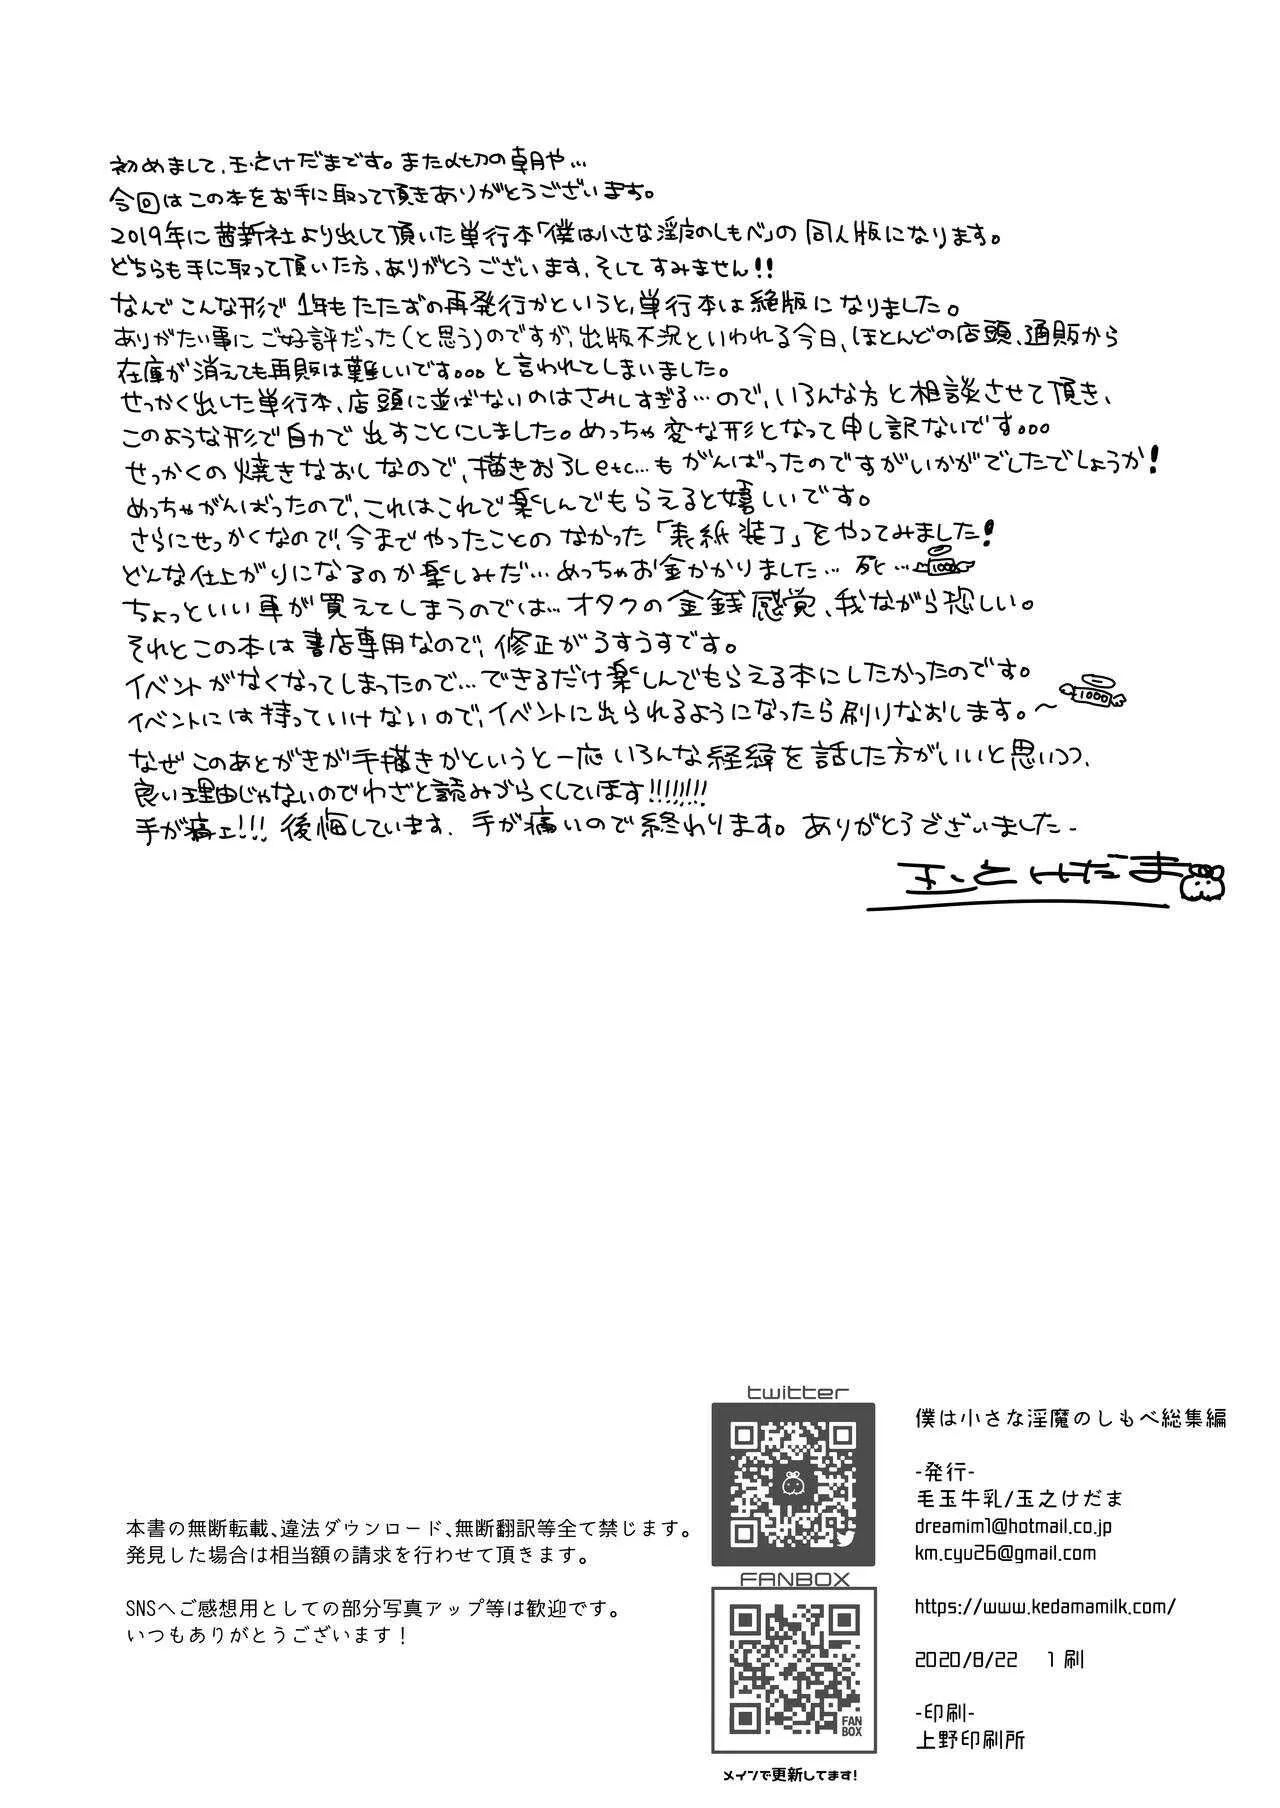 初めまして、玉之けだまです。また締切の朝や…
今回はこの本をお手に取って頂きありがとうございます。
2019年に茜新社より出して頂いた単行本「僕は小さな淫魔のしもべ」の同人版になります。
どちらも手に取って頂いた方、ありがとうございます、そしてすみません!!
なんでこんな形で1年もたたずの再発行かというと、単行本は絶版になりました。
ありがたい事にご好評だった(と思う)のですが、出版不況といわれる今日、ほとんどの店頭、通販から
在庫が消えても再販は難しいです。。。と言われてしまいました。
せっかく出した単行本、店頭に並ばないのはさみしすぎる…ので、いろんな方と相談させて頂き、
このような形で自力で出すことにしました。めっちゃ変な形となって申し訳ないです。。。
せっかくの焼きなおしなので、描きおろしetc…もがんばったのですがいかがでしたでしょうか!
めっちゃがんばったので、これはこれで楽しんでもらえると嬉しいです。
さらにせっかくなので、今までやったことのなかった「表紙装丁」をやってみました!
どんな仕上がりになるのか楽しみだ…めっちゃお金かかりました…死…
1000
ちょっといい車が買えてしまうのでは…オタクの金銭感覚、我ながら恐しい。
それとこの本は書店専用なので、修正がうすうすです。
イベントがなくなってしまったので…できるだけ楽しんでもらえる本にしたかったのです。
イベントには持っていけないので、イベントに出られるようになったら刷りなおします。〜
1000
なぜこのあとがきが手描きかというと一応いろんな経緯を話した方がいいと思いつつ、
良い理由じゃないのでわざと読みづらくしています!!!!!!!!
手が痛ェ!!! 後悔しています、手が痛いので終わります。ありがとうございました-
玉之けだま
twitter
FANBOX
FAN
BOX
メインで更新してます!
本書の無断転載、違法ダウンロード、無断翻訳等全て禁じます。
発見した場合は相当額の請求を行わせて頂きます。
SNSへご感想用としての部分写真アップ等は歓迎です。
いつもありがとうございます！
僕は小さな淫魔のしもべ総集編
-発行-
毛玉牛乳/玉之けだま
dreamim1@hotmail.co.jp
km.cyu26@gmail.com
https://www.kedamamilk.com/
2020/8/22　1刷
-印刷-
上野印刷所